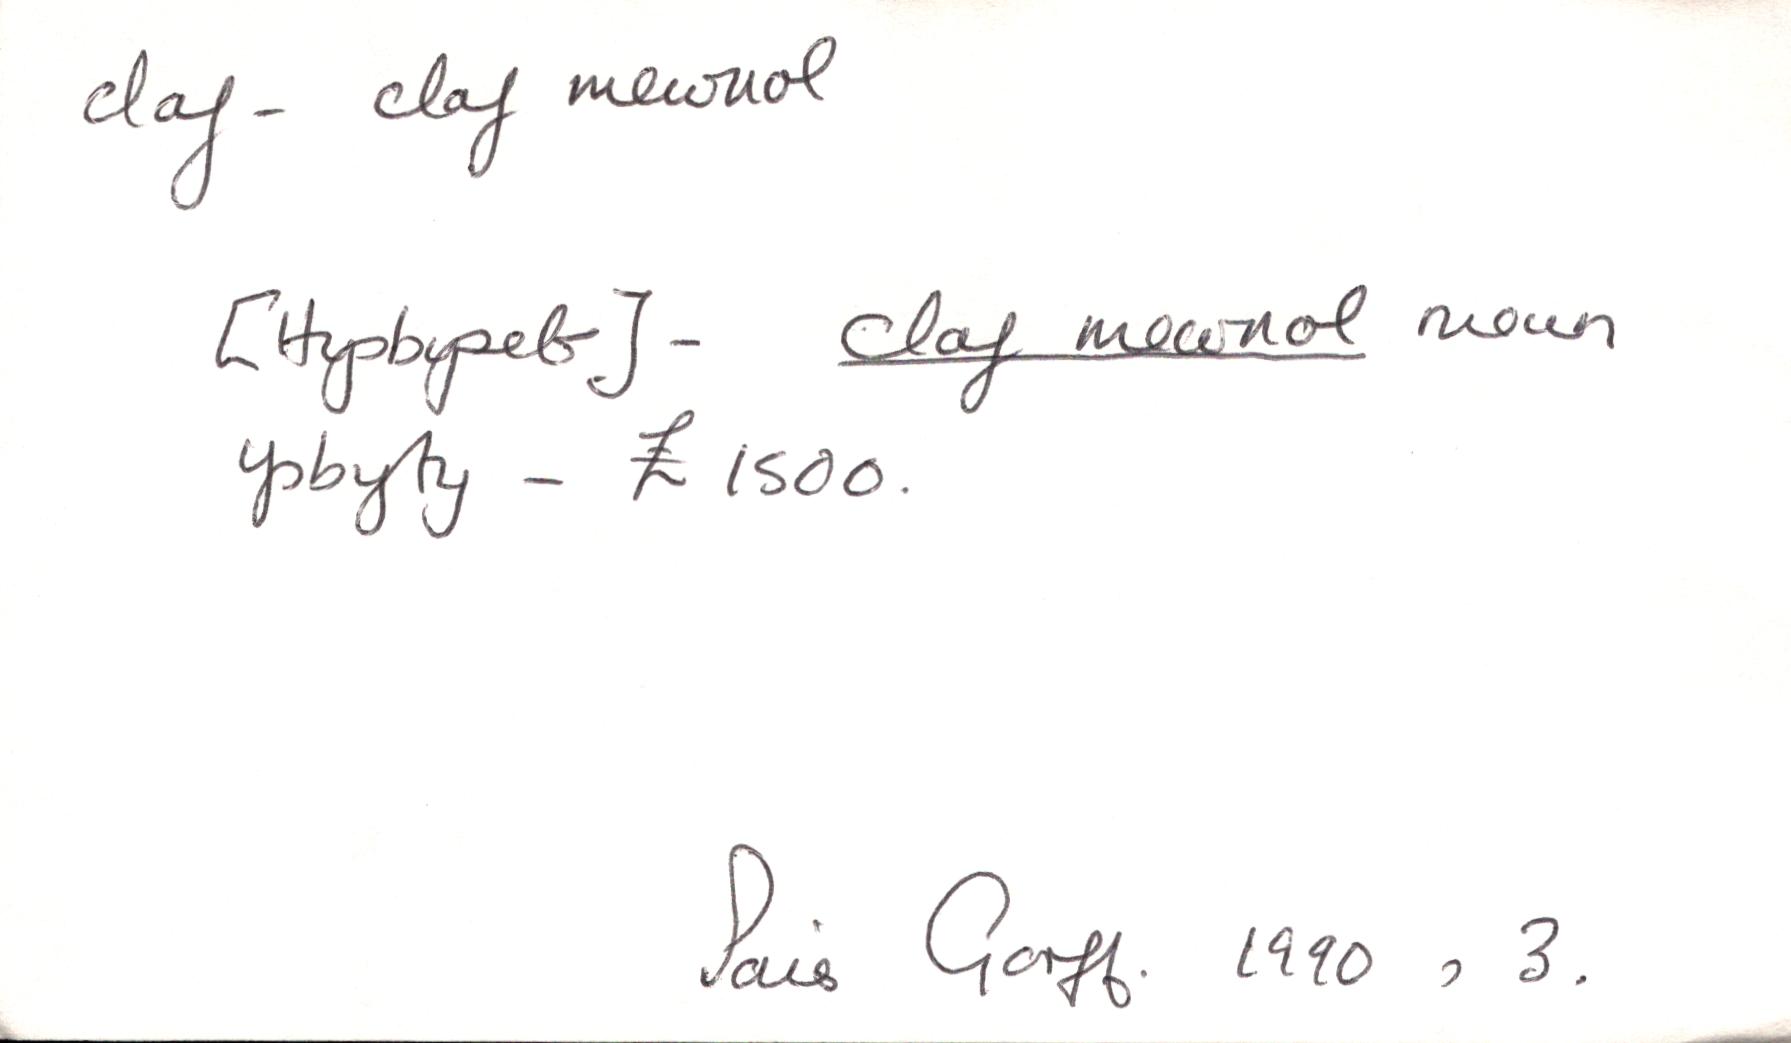 claf - claf mewnol
[Hysbyseb] - claf mewnol mewn
ysbyty - £1500.
Pais Gorff. 1990, 3.